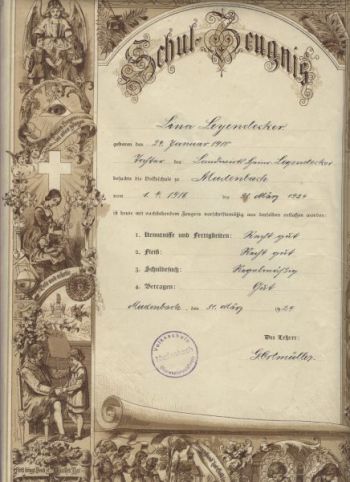 Schul-Zeugnis
Lina Leyendecker
geboren den 29. Januar 1910
Tochter des Landwirt Heinr. Leyendecker
besuchte die Volksschule zu Mudenbach
vom 1. 4. 1916 bis 31 März 1924
ist heute mit nachstehendem Zeugnis vorschriftsmäßig aus derselben entlassen worden:
1. Kenntnisse und Fertigkeiten: Recht gut
2. Fleiß: Recht gut
3. Schulbesuch: Regelmäßig
4. Betragen: Gut
Mudenbach, den 31. März 1924
Der Lehrer:
Volksschule
Mudenbach